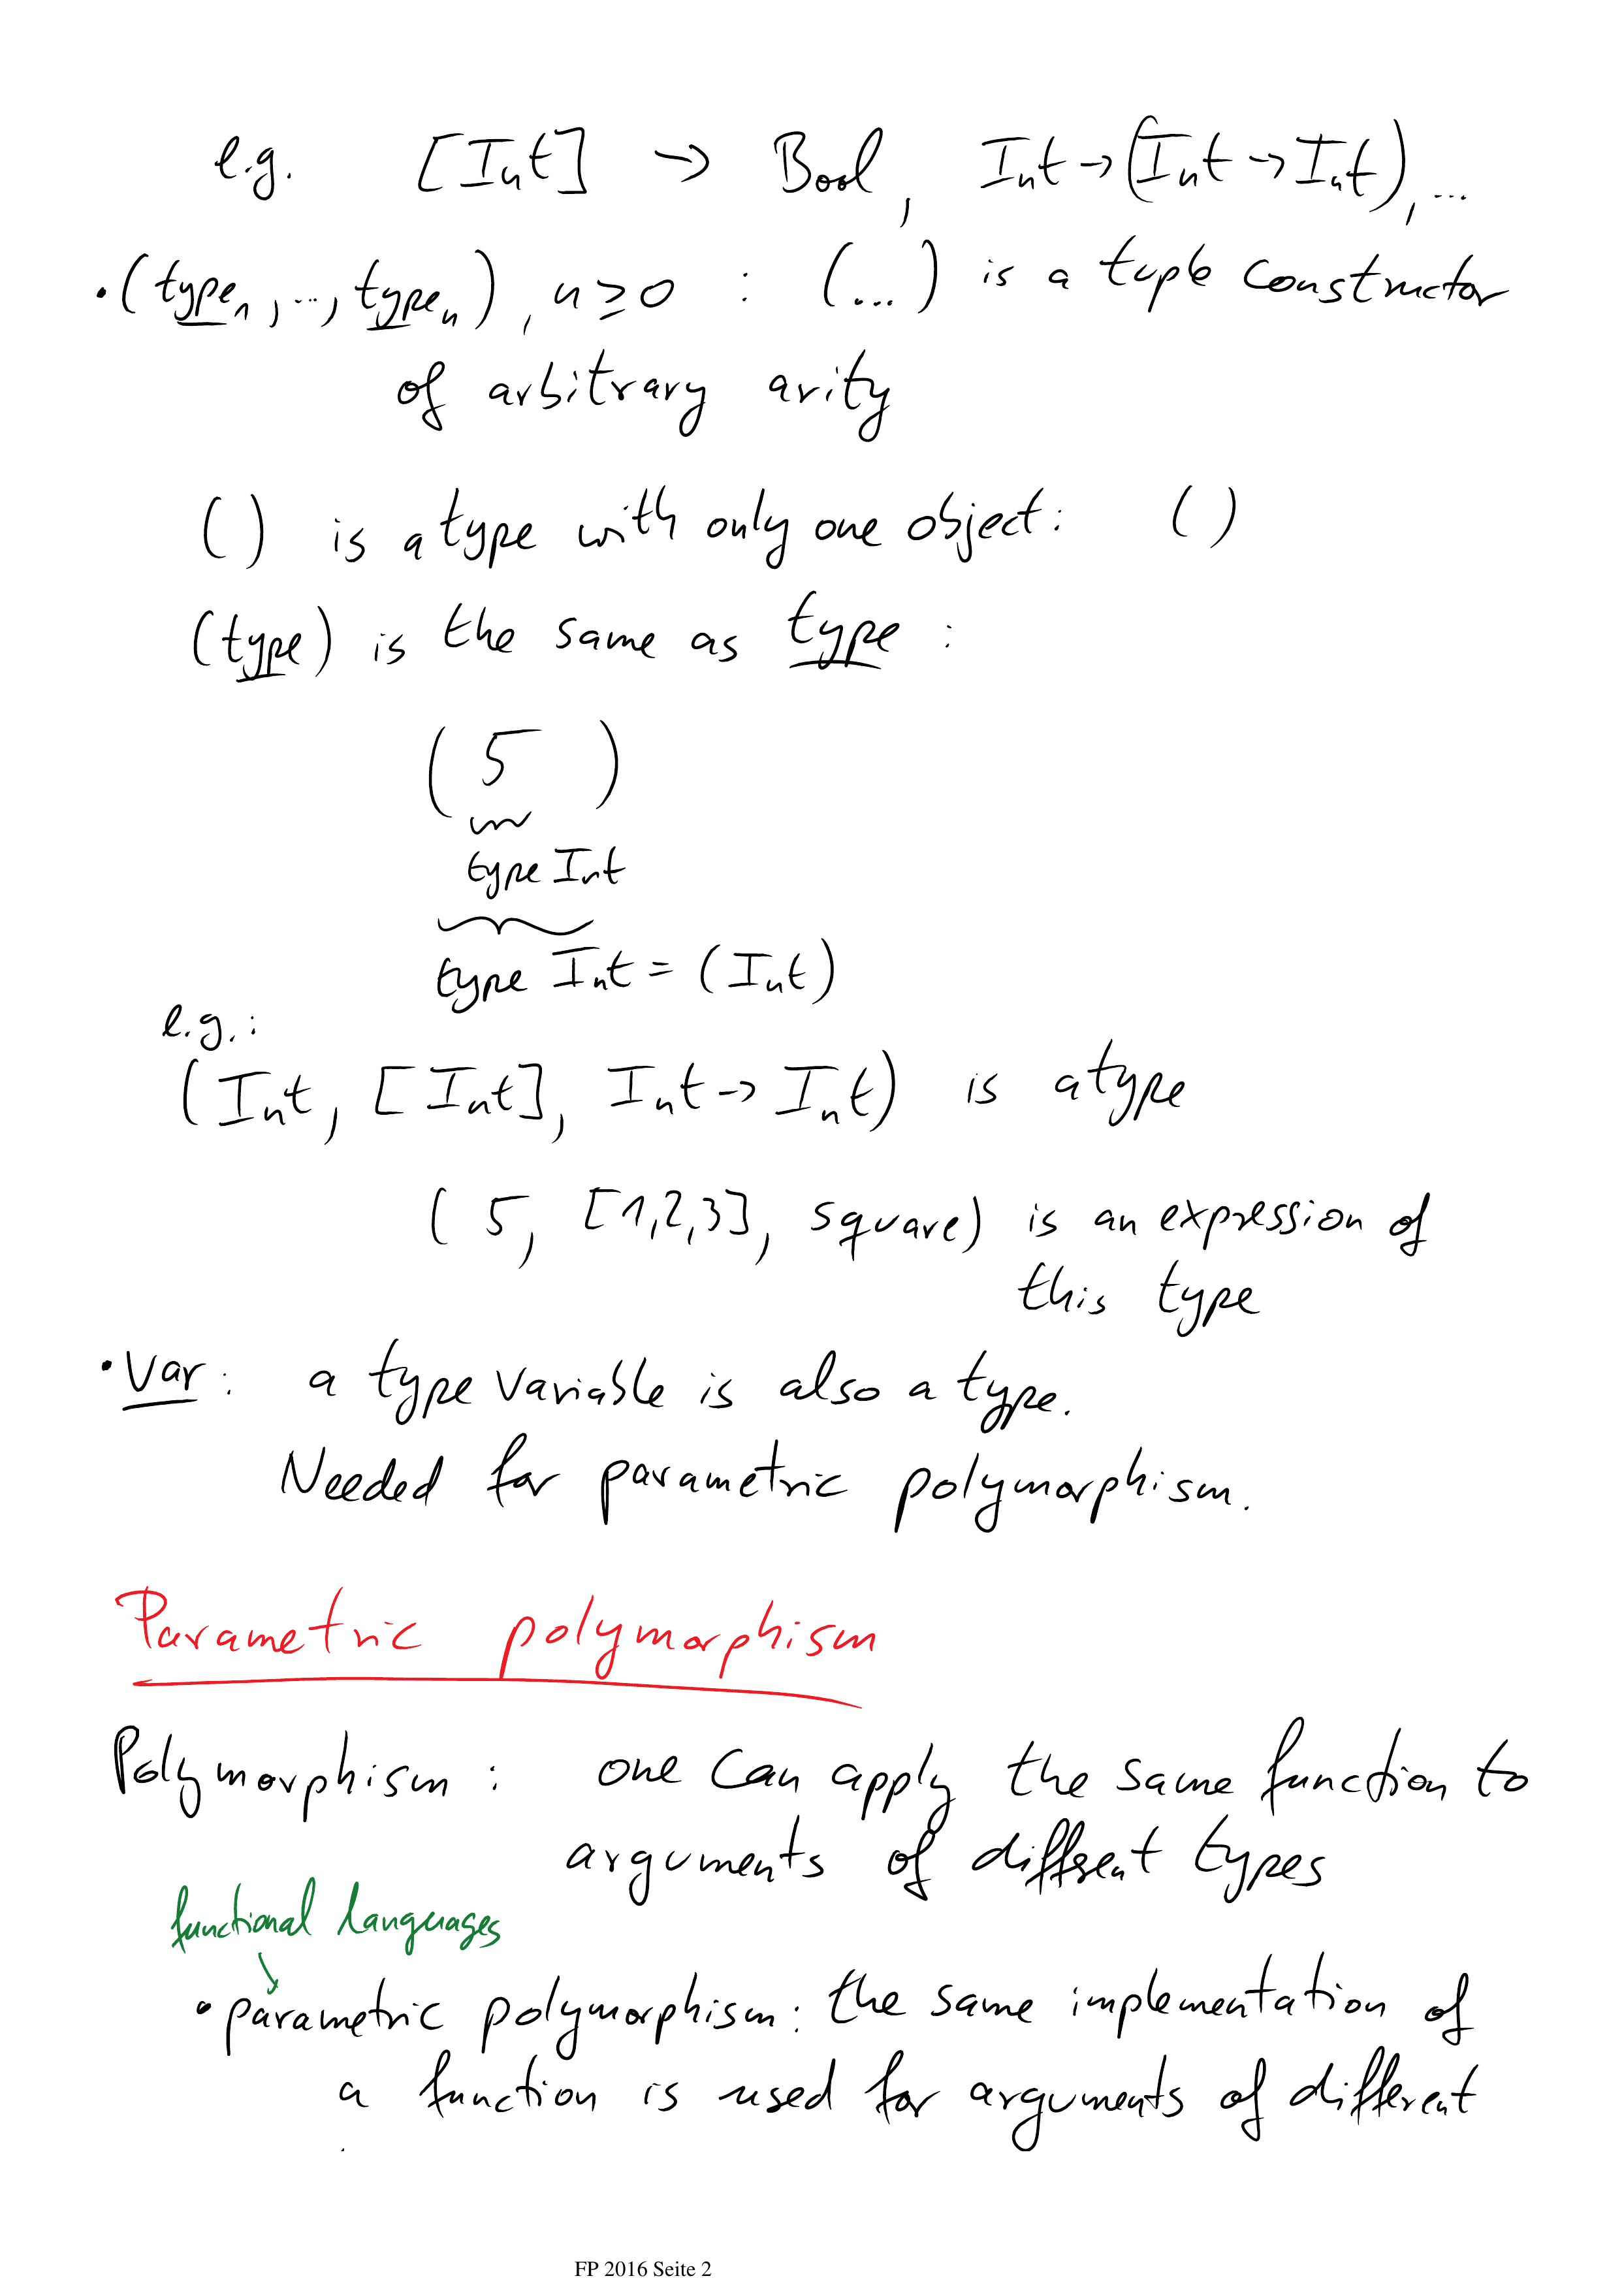 e.g. [Int] → Bool, Int → (Int → Int), ...
• (type₁, ..., typeₙ), n ≥ 0 : (...) is a tuple constructor
of arbitrary arity
( ) is a type with only one object: ( )
(type) is the same as type :
( 5 )
type Int
type Int = (Int)
e.g.:
(Int, [Int], Int → Int) is a type
( 5, [1,2,3], square) is an expression of
this type
• Var : a type variable is also a type.
Needed for parametric polymorphism.
Parametric polymorphism
Polymorphism : one can apply the same function to
arguments of different types
functional languages
• parametric polymorphism: the same implementation of
a function is used for arguments of different
FP 2016 Seite 2